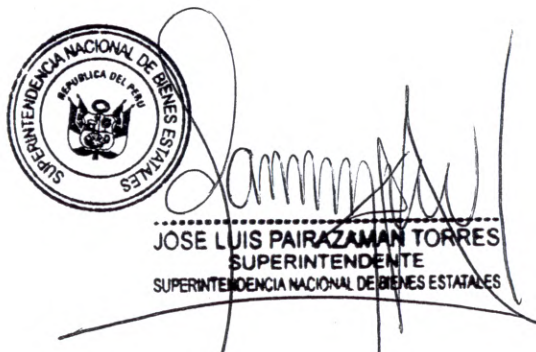 SUPERINTENDENCIA NACIONAL DE BIENES ESTATALES
REPUBLICA DEL PERU
JOSE LUIS PAIRAZAMAN TORRES
SUPERINTENDENTE
SUPERINTENDENCIA NACIONAL DE BIENES ESTATALES